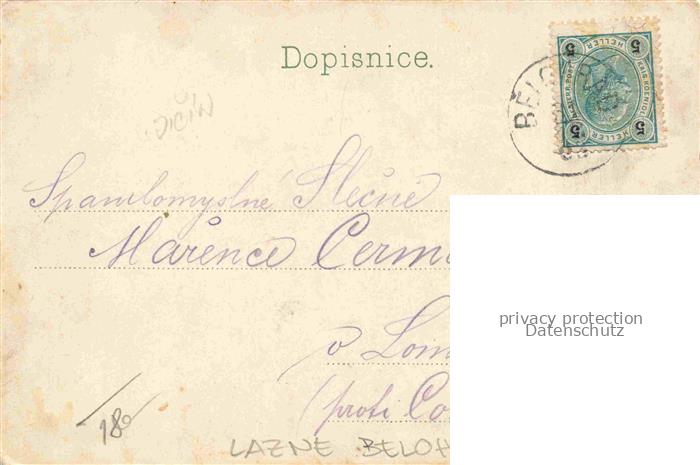 Dopisnice.
BĚLOHR
5 HELLER 5
KAIS. KOENIGL.
OESTERR. POST
5 HELLER 5
JIČÍN
Spanilomyslné Slečně
Mařence Čerm
v Lom
(proti Co
180
LAZNE BELOH
privacy protection
Datenschutz